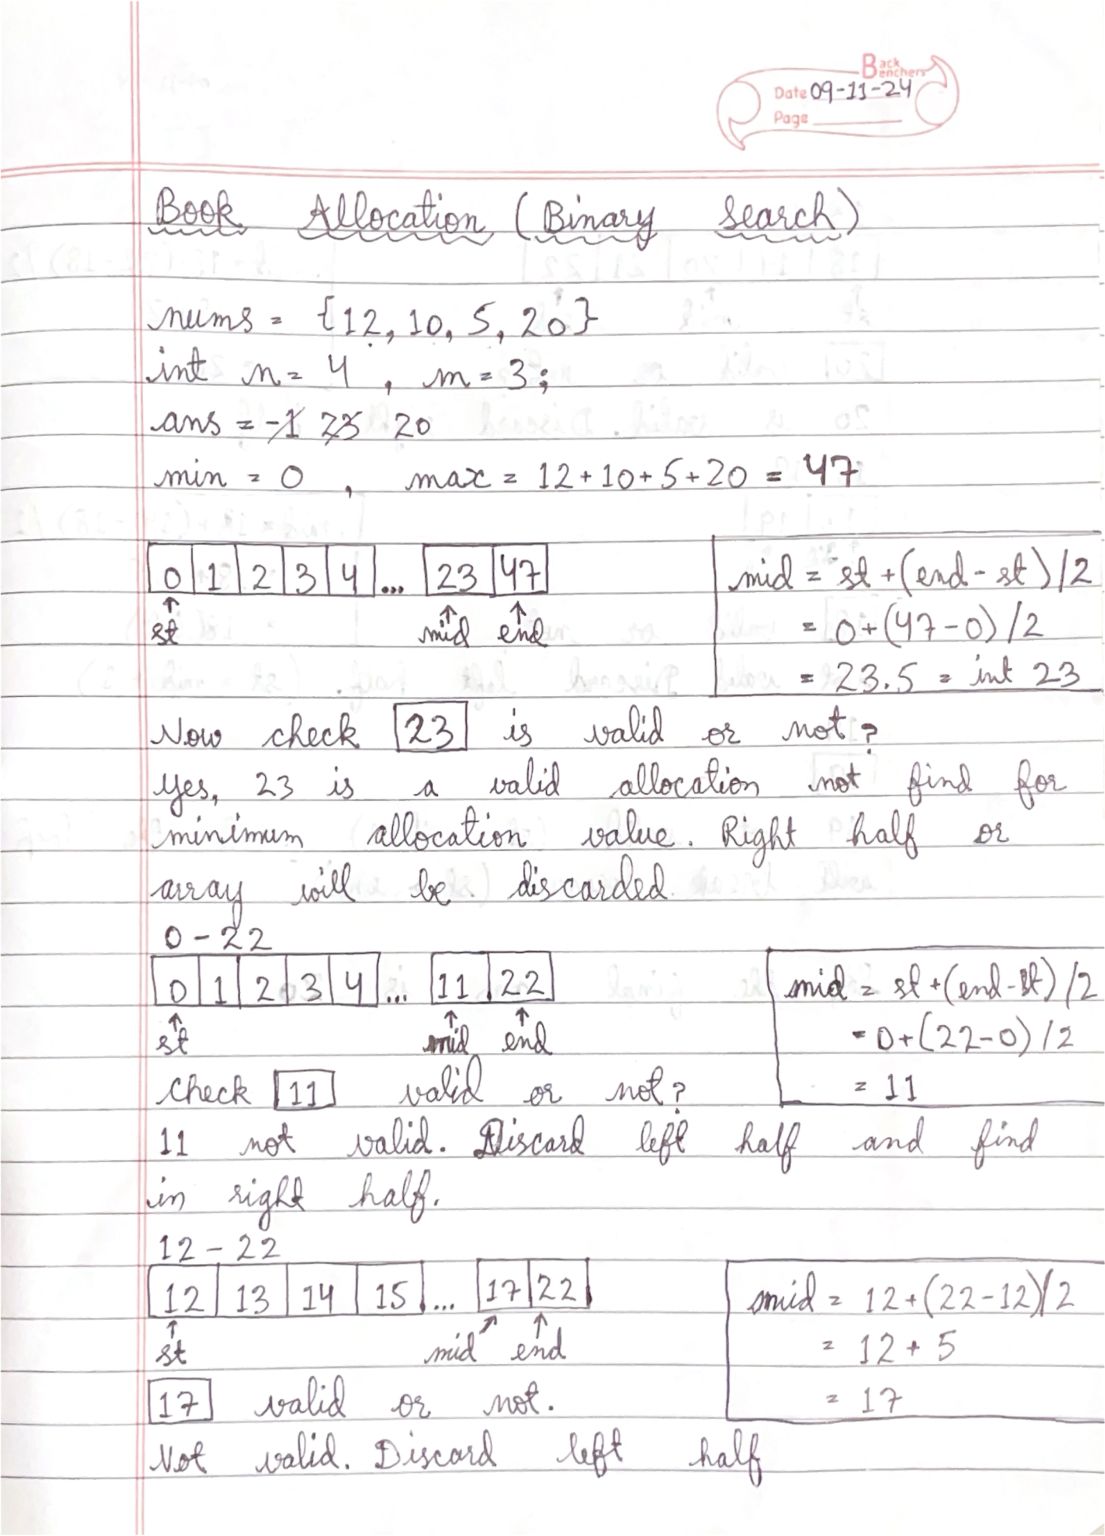 Back Benchers
Date 09-11-24
Page
Book Allocation (Binary Search)
nums = {12, 10, 5, 20}
int n = 4 , m = 3;
ans = -1 23 20
min = 0 , max = 12+10+5+20 = 47
0 1 2 3 4 ... 23 47
st mid end
mid = st + (end - st) /2
= 0+(47-0) /2
= 23.5 = int 23
Now check 23 is valid or not?
Yes, 23 is a valid allocation not find for
minimum allocation value. Right half or
array will be discarded.
0 - 22
0 1 2 3 4 ... 11 22
st mid end
mid = st +(end-st) /2
= 0+(22-0) /2
= 11
Check 11 valid or not?
11 not valid. Discard left half and find
in right half.
12 - 22
12 13 14 15 ... 17 22
st mid end
mid = 12+(22-12)/2
= 12 + 5
= 17
17 valid or not.
Not valid. Discard left half